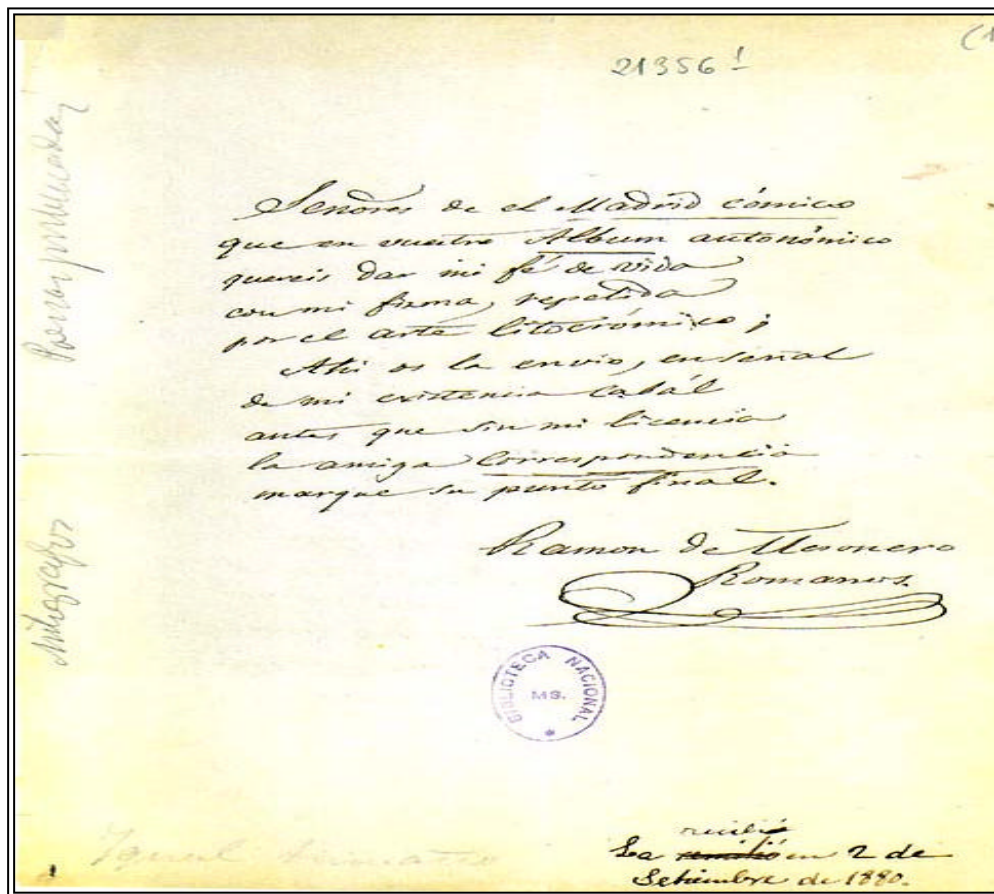 (1
21356 1
Señores de el Madrid cómico
que en vuestro Album autonómico
quereis dar mi fé de vida
con mi firma, repetida
por el arte litocrómico;
Ahi os la envio, en señal
de mi existencia cabál
antes que sin mi licencia
la amiga Correspondencia
marque su punto final.
Ramon de Mesonero
Romanos.
BIBLIOTECA NACIONAL
MS.
recibió
La remitió en 2 de
Setiembre de 1880.
Autografos
1